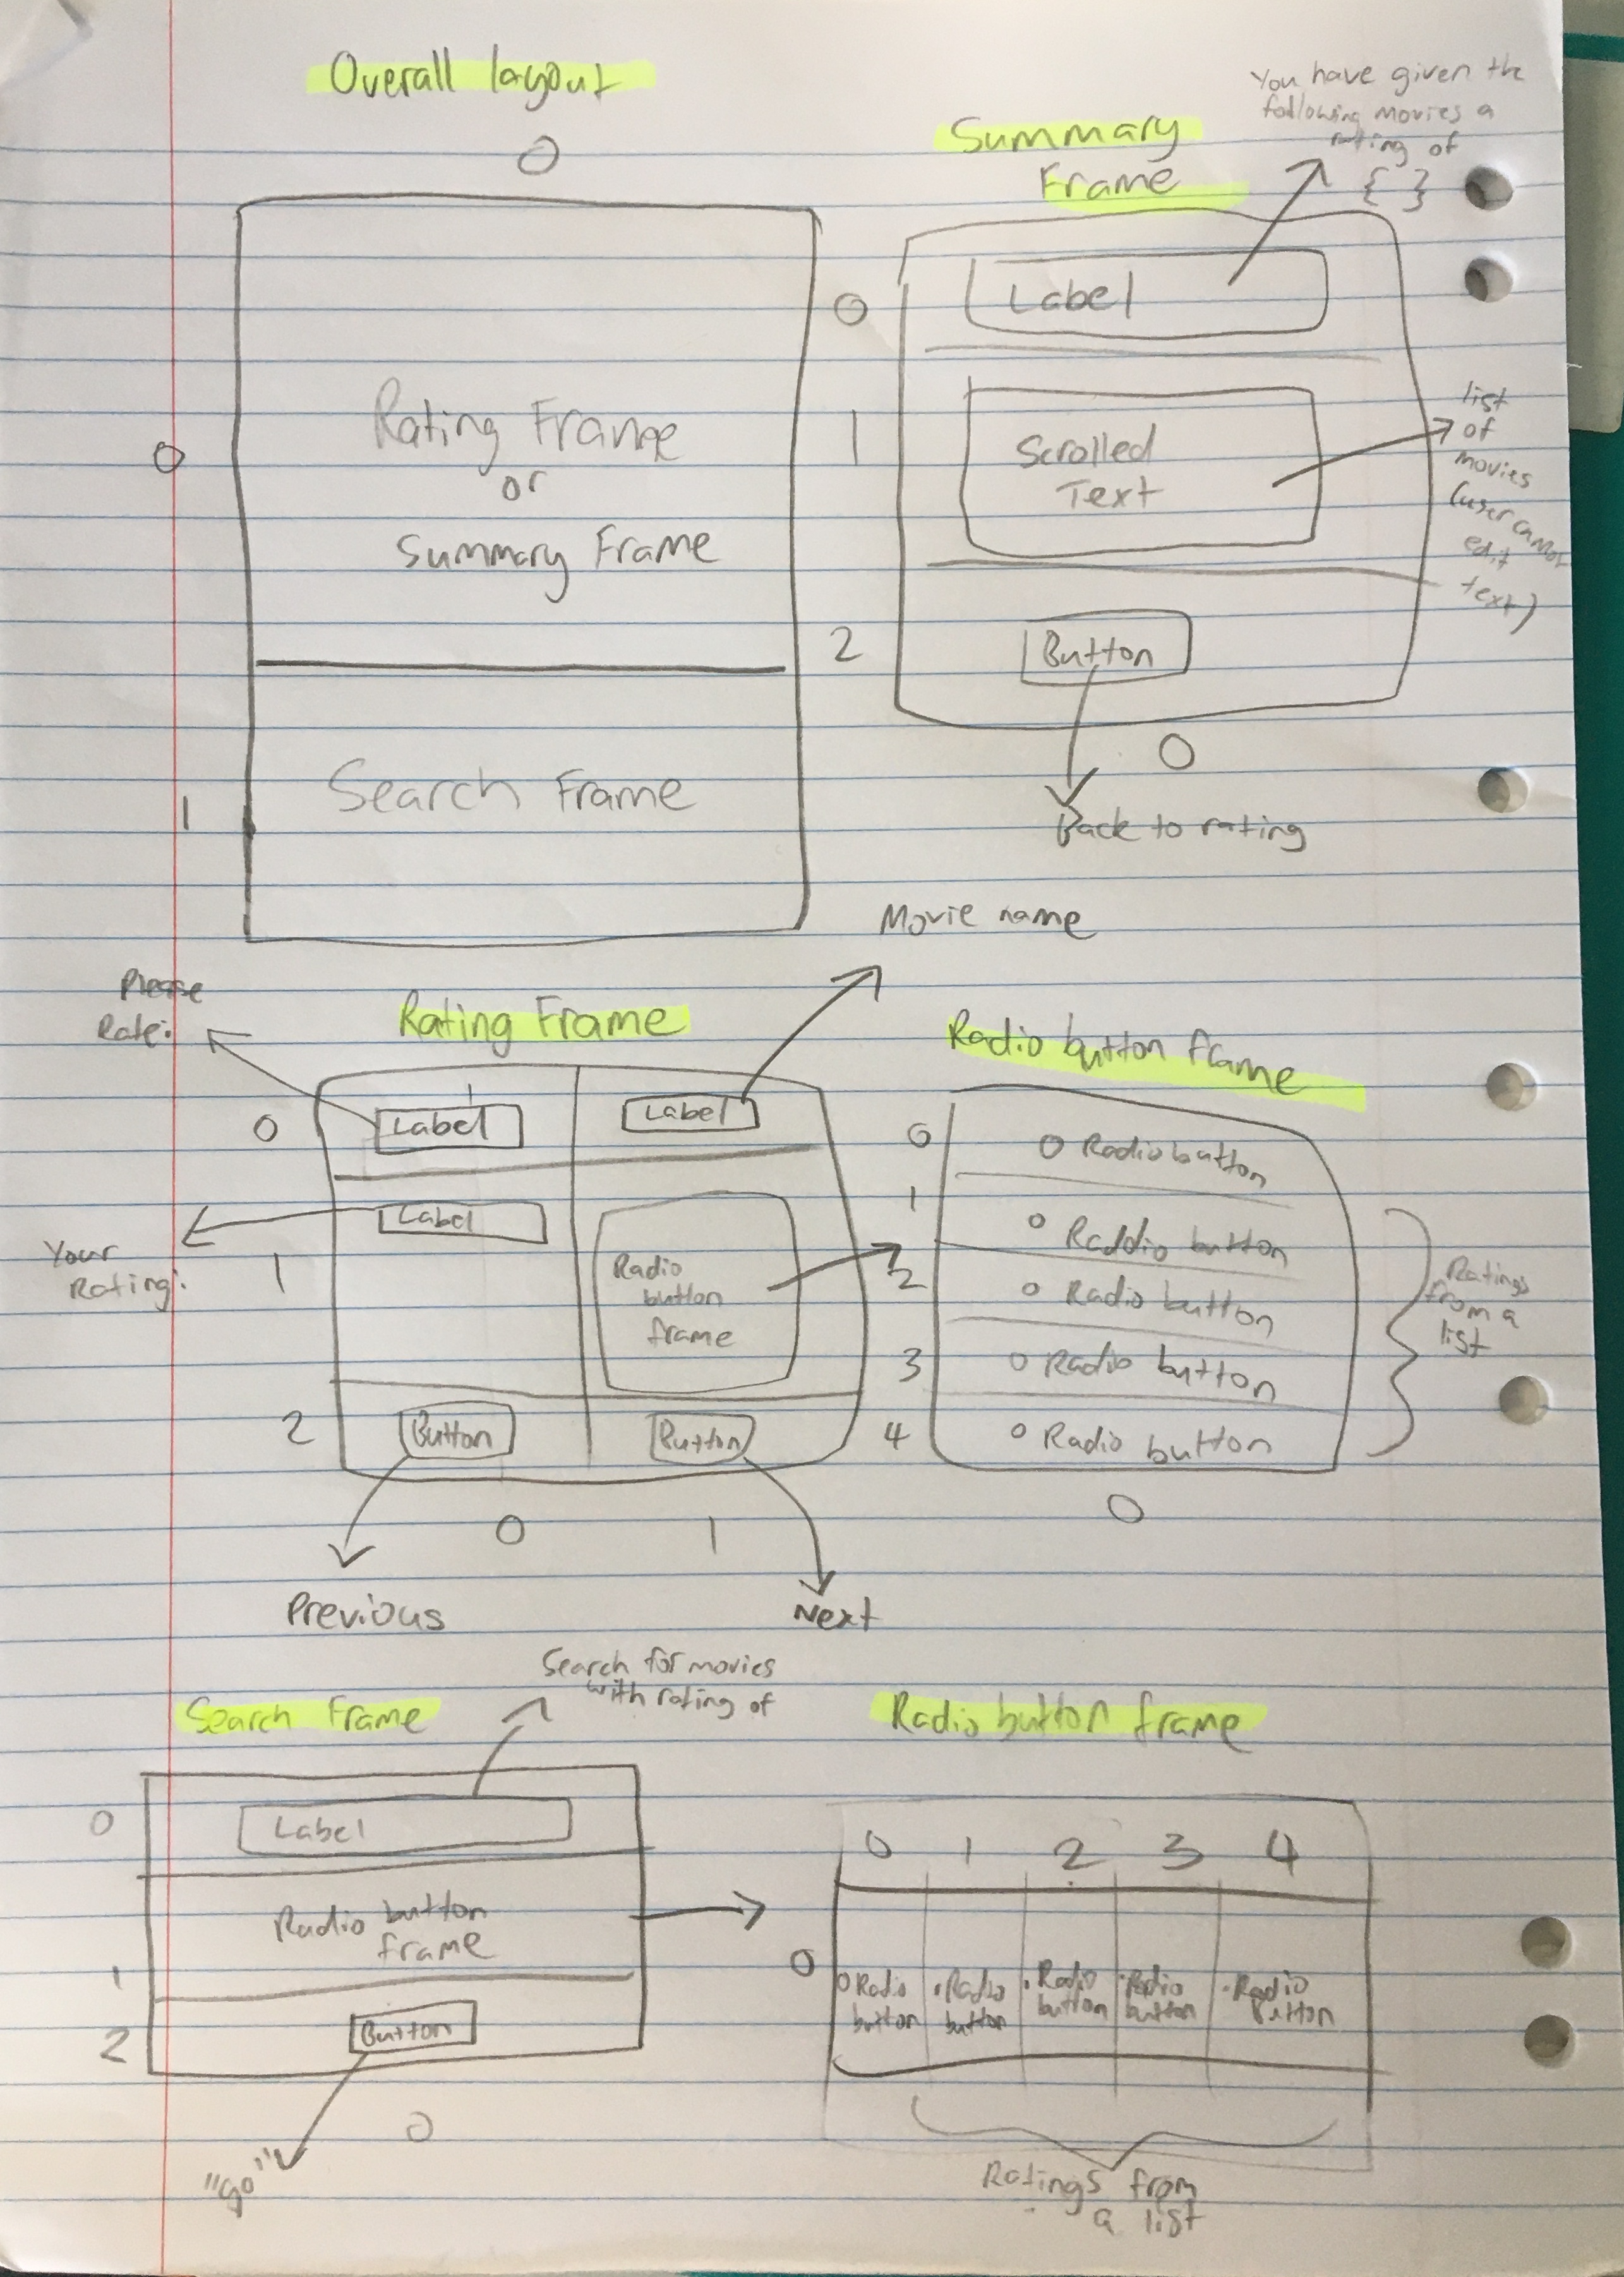 Overall layout
0
0
Rating Frame
or
Summary Frame
1
Search Frame
Summary
Frame
You have given the
following movies a
rating of
{ }
0
Label
1
Scrolled
Text
list
of
movies
(user cannot
edit
text)
2
Button
0
Back to rating
Movie name
Please
Rate:
Rating Frame
0
Label
Label
Label
Your
Rating:
1
Radio
button
frame
2
Button
Button
0
1
Previous
Next
Radio button frame
0
Radio button
1
Raddio button
2
Radio button
3
Radio button
4
Radio button
Ratings
from a
list
0
Search Frame
Search for movies
with rating of
0
Label
Radio button
frame
1
2
Button
0
"go"
Radio button frame
0 1 2 3 4
0
Radio
button
Radio
button
Radio
button
Radio
button
Radio
button
Ratings from
a list